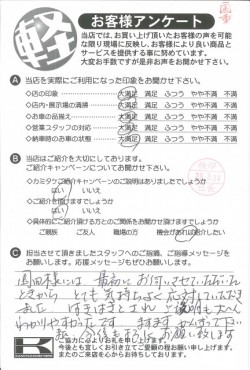 軽
お客様アンケート
当店では、お買い上げ頂いたお客様の声を可能
な限り現場に反映し、お客様により良い商品と
サービスを提供する事に努めています。
大変お手数ですが是非お声をお聞かせ下さい。
A 当店を実際にご利用になった印象をお聞かせ下さい。
◇店の印象 大満足 満足 ふつう やや不満 不満
◇店内・展示場の清掃 大満足 満足 ふつう やや不満 不満
◇お車の品揃え 大満足 満足 ふつう やや不満 不満
◇営業スタッフの対応 大満足 満足 ふつう やや不満 不満
◇納車時のお車の状態 大満足 満足 ふつう やや不満 不満
B 当店はご紹介を大切にしております。
ご紹介キャンペーンについてお聞かせ下さい。
◇カミタケご紹介キャンペーンのご説明はありましたでしょうか
はい いいえ
◇ご紹介を頂けますでしょうか
はい いいえ
◇具体的にご紹介頂ける方とのご関係をお聞かせ頂けますでしょうか
ご親族 ご友人 職場の方 機会があれば紹介したい
C 担当させて頂きましたスタッフへのご指摘、ご指導メッセージを
お願いします。応援メッセージもぜひお願いします。
様には 最初に お伺いさせていただいた
ときから とても気持ちよく応対していただき
ました
わかりやすかったです
ご協力に心よりお礼を申し上げます。
今後とも宜しくお引き立てご愛顧の程お願い申し上げます。
またのご来店を心からお待ちしております。